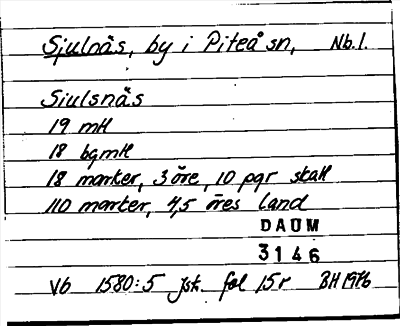 Sjulnäs, by i Piteå sn, Nb.l.
Siulsnäs
19 mtl
18 bgmtl
18 marker, 3 öre, 10 pgr skatt
110 marker, 4,5 öres land
DAUM
3146
Vb 1580:5 jsk. fol 15r BH 1976